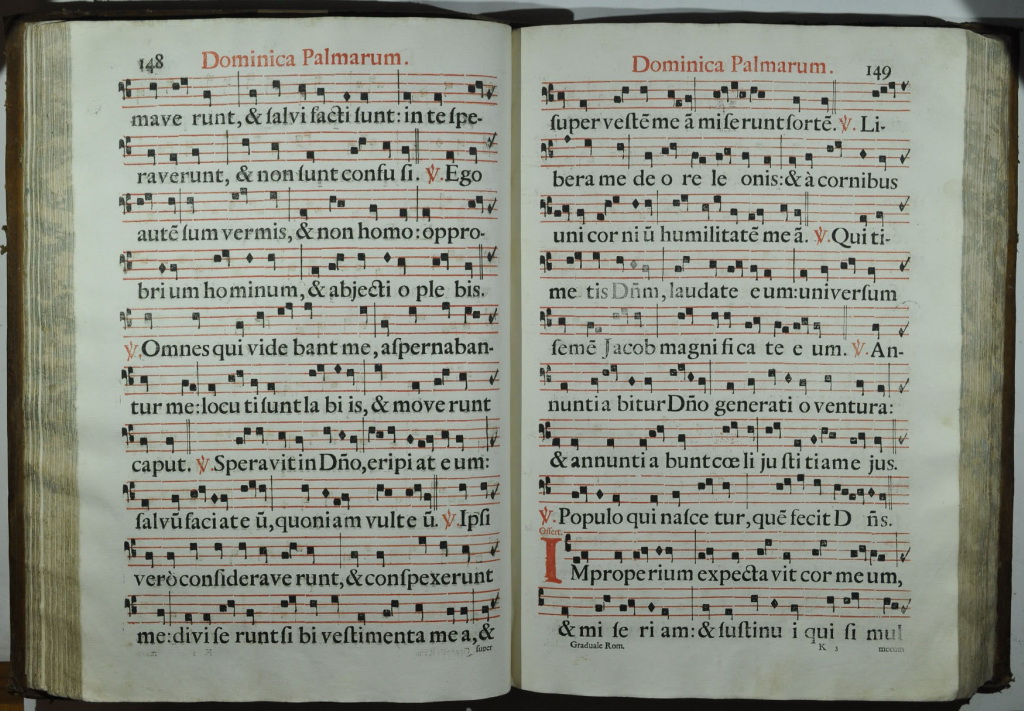 148 Dominica Palmarum.
mave runt, & ſalvi facti ſunt: in te ſpe-
raverunt, & non ſunt confu ſi. ℣. Ego
autē ſum vermis, & non homo: oppro-
bri um hominum, & abjecti o ple bis.
℣. Omnes qui vide bant me, aſpernaban-
tur me: locu ti ſunt la bi is, & move runt
caput. ℣. Speravit in Dño, eripi at e um:
ſalvū faci at e ū, quoni am vult e ū. ℣. Ipſi
verò conſiderave runt, & conſpexerunt
me: divi ſe runt ſi bi veſtimenta me a, &
ſuper
Dominica Palmarum. 149
ſuper veſtē me ā mi ſe runt ſortē. ℣. Li-
bera me de o re le onis: & à cornibus
uni cor ni ū humilitatē me ā. ℣. Qui ti-
me tis Dñm, laudate e um: univerſum
ſemē Jacob magni fi ca te e um. ℣. An-
nunti a bitur Dño generati o ventura:
& annunti a bunt cœ li ju ſti ti am e jus.
℣. Populo qui naſce tur, quē fecit D ñs.
Offert.
IMproperium expecta vit cor me um,
& mi ſe ri am: & ſuſtinu i qui ſi mul
Graduale Rom. K 3 mecum